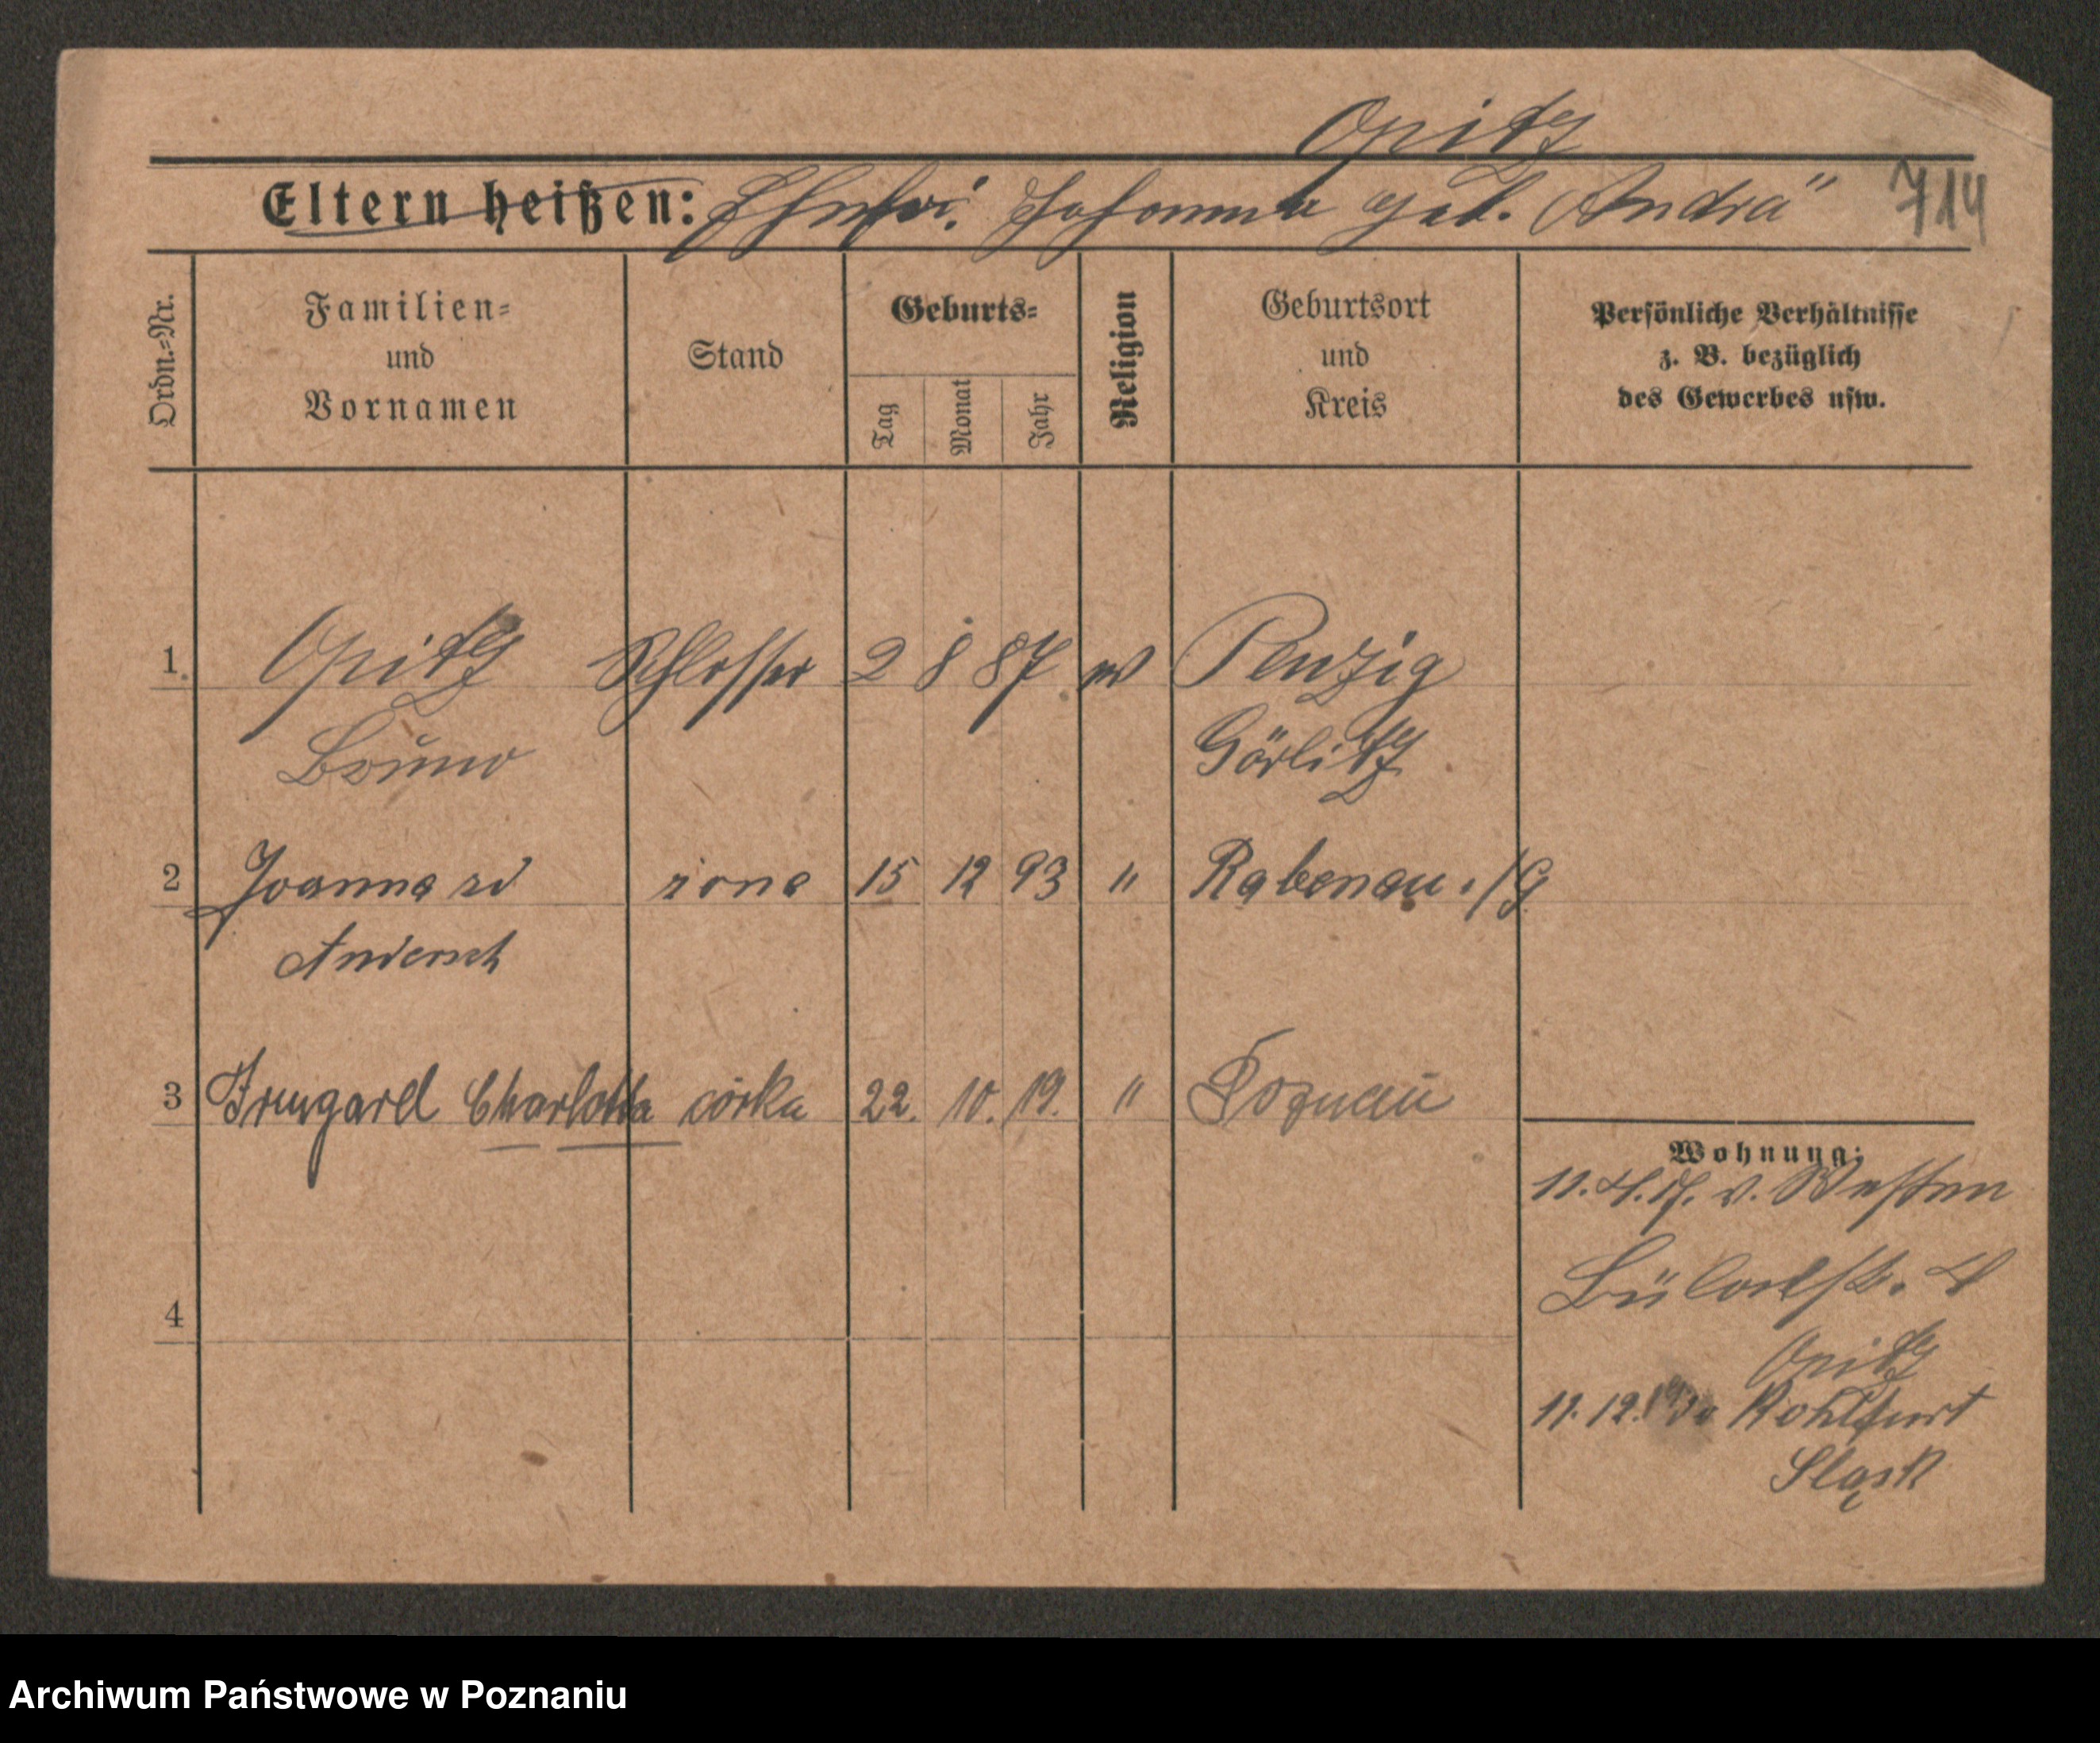 Opitz
Eltern heißen: Ehefr. Johanna geb. Andrä 714
Ordn.-Nr.
Familien-
und
Vornamen
Stand
Geburts-
Tag
Monat
Jahr
Religion
Geburtsort
und
Kreis
Persönliche Verhältnisse
z. B. bezüglich
des Gewerbes usw.
1. Opitz Schlosser 2 8 87 ew Penzig
Bruno Görlitz
2 Joanna zd żona 15 12 93 " Rabenau ./G
Andersch
3 Irmgard Charlotta córka 22. 10. 19. " Poznań
Wohnung:
11.4.17. v. Westen
Bülowstr. 4
Opitz
4
11.12. do Kohlfurt
Śląsk
Archiwum Państwowe w Poznaniu